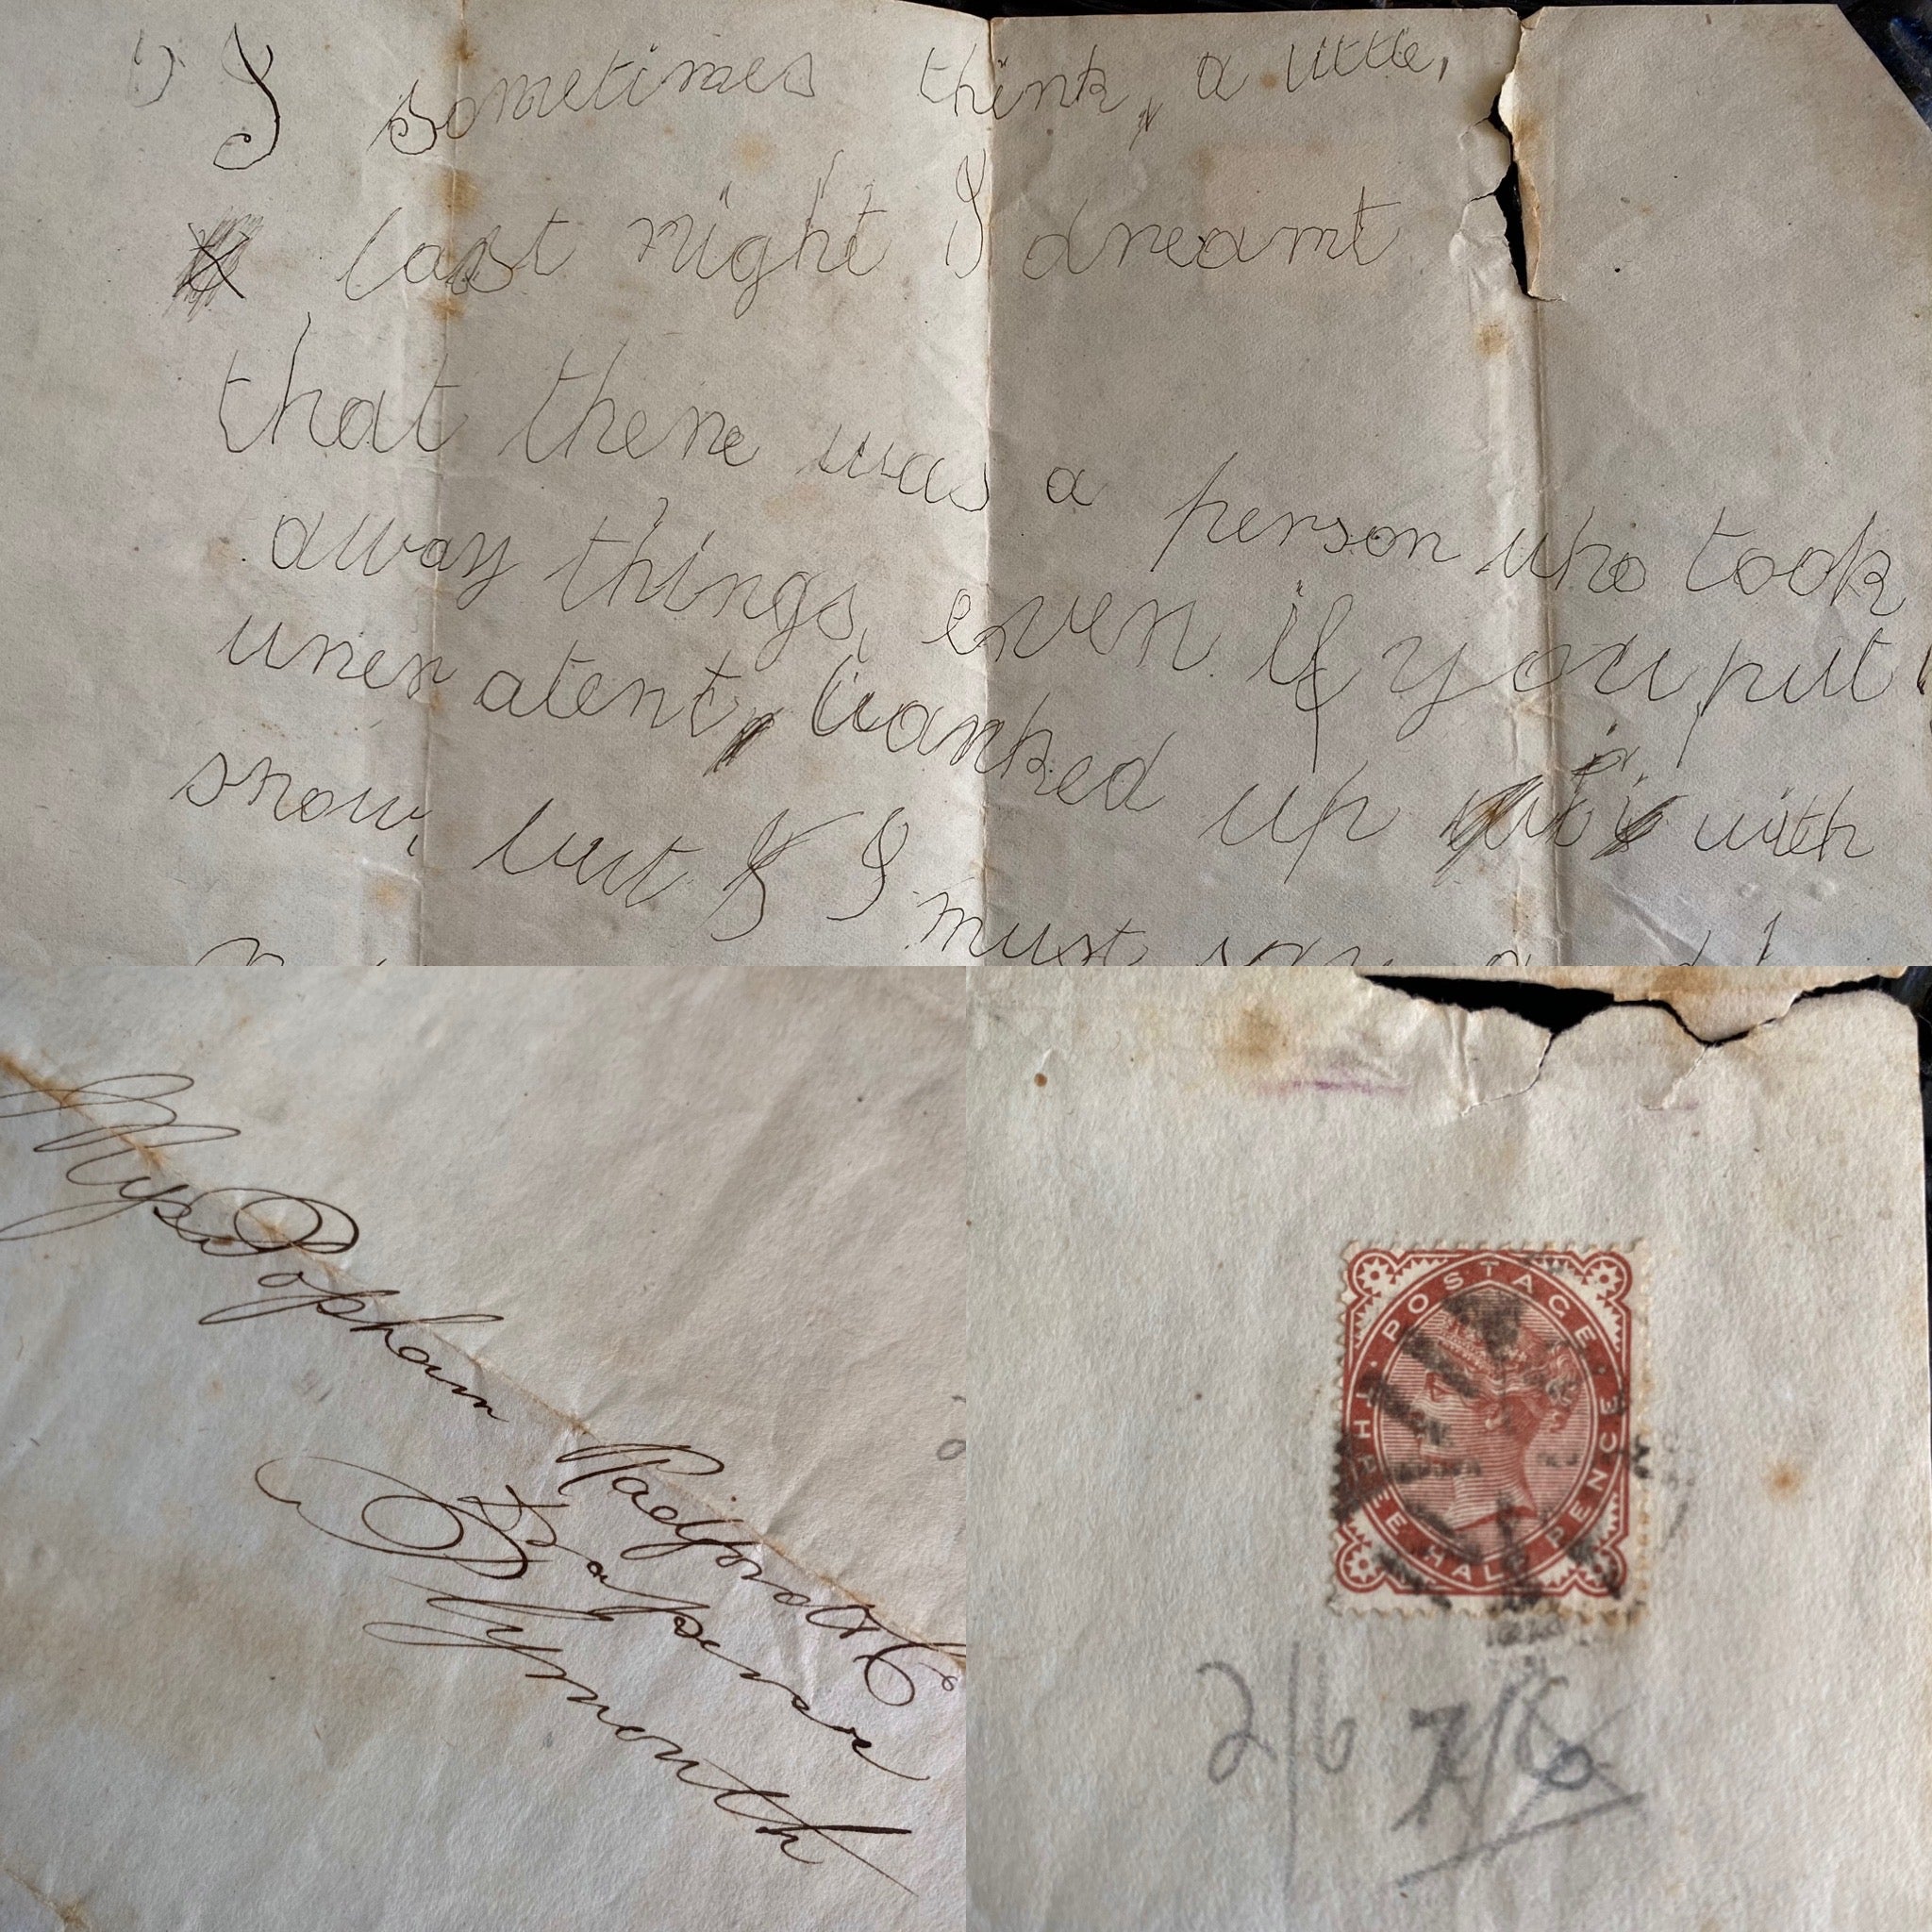 1) I sometimes think, a little,
last night I dreamt
that there was a person who took
away things, even if you put
uner atent, banked up with
snow, but I I must say a
Popham
Radford & Co
Plymouth
POSTAGE
THREE HALF PENCE
2/6 7/6